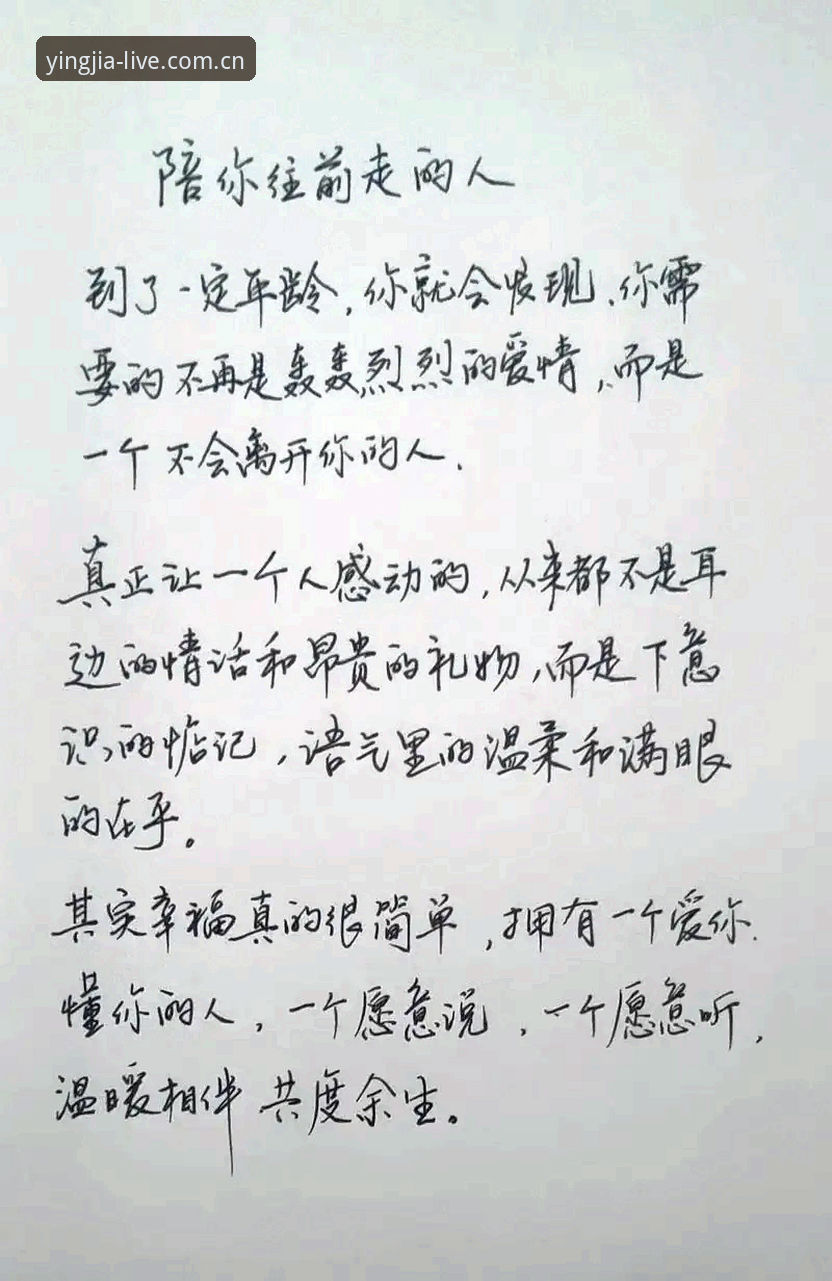 yingjia-live.com.cn
陪你往前走的人
到了一定年龄,你就会发现,你需
要的不再是轰轰烈烈的爱情,而是
一个不会离开你的人.
真正让一个人感动的,从来都不是耳
边的情话和昂贵的礼物,而是下意
识的惦记,语气里的温柔和满眼
的在乎。
其实幸福真的很简单,拥有一个爱你.
懂你的人,一个愿意说,一个愿意听,
温暖相伴 共度余生。